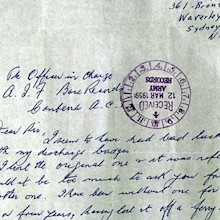 361. Bron
Waverley
Sydney
The Officer in Charge
A.I.F Base Records
Canberra A.C.
RECEIVED
12 MAR 1959
ARMY
RECORDS
Dear Sir,
I seem to have had bad luck
with my discharge badges
I lost the original one & it was re
would it be too much to ask you f
other one. I have been without one for
a few years, having lost it off a ferry